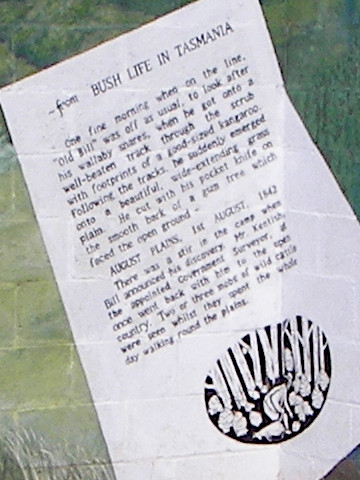 -from BUSH LIFE IN TASMANIA
One fine morning when on the line,
"Old Bill" was off as usual, to look after
his wallaby snares, when he got onto a
well-beaten track through the scrub
with footprints of a good-sized kangaroo.
Following the tracks, he suddenly emerged
onto a beautiful, wide-extending grass
plain. He cut with his pocket knife on
the smooth back of a gum tree which
faced the open ground -
AUGUST PLAINS, 1st AUGUST, 1842
There was a stir in the camp when
Bill announced his discovery. Mr. Kentish,
the appointed Government Surveyor, at
once went back with him to the open
country. Two or three mobs of wild cattle
were seen whilst they spent the whole
day walking round the plains.